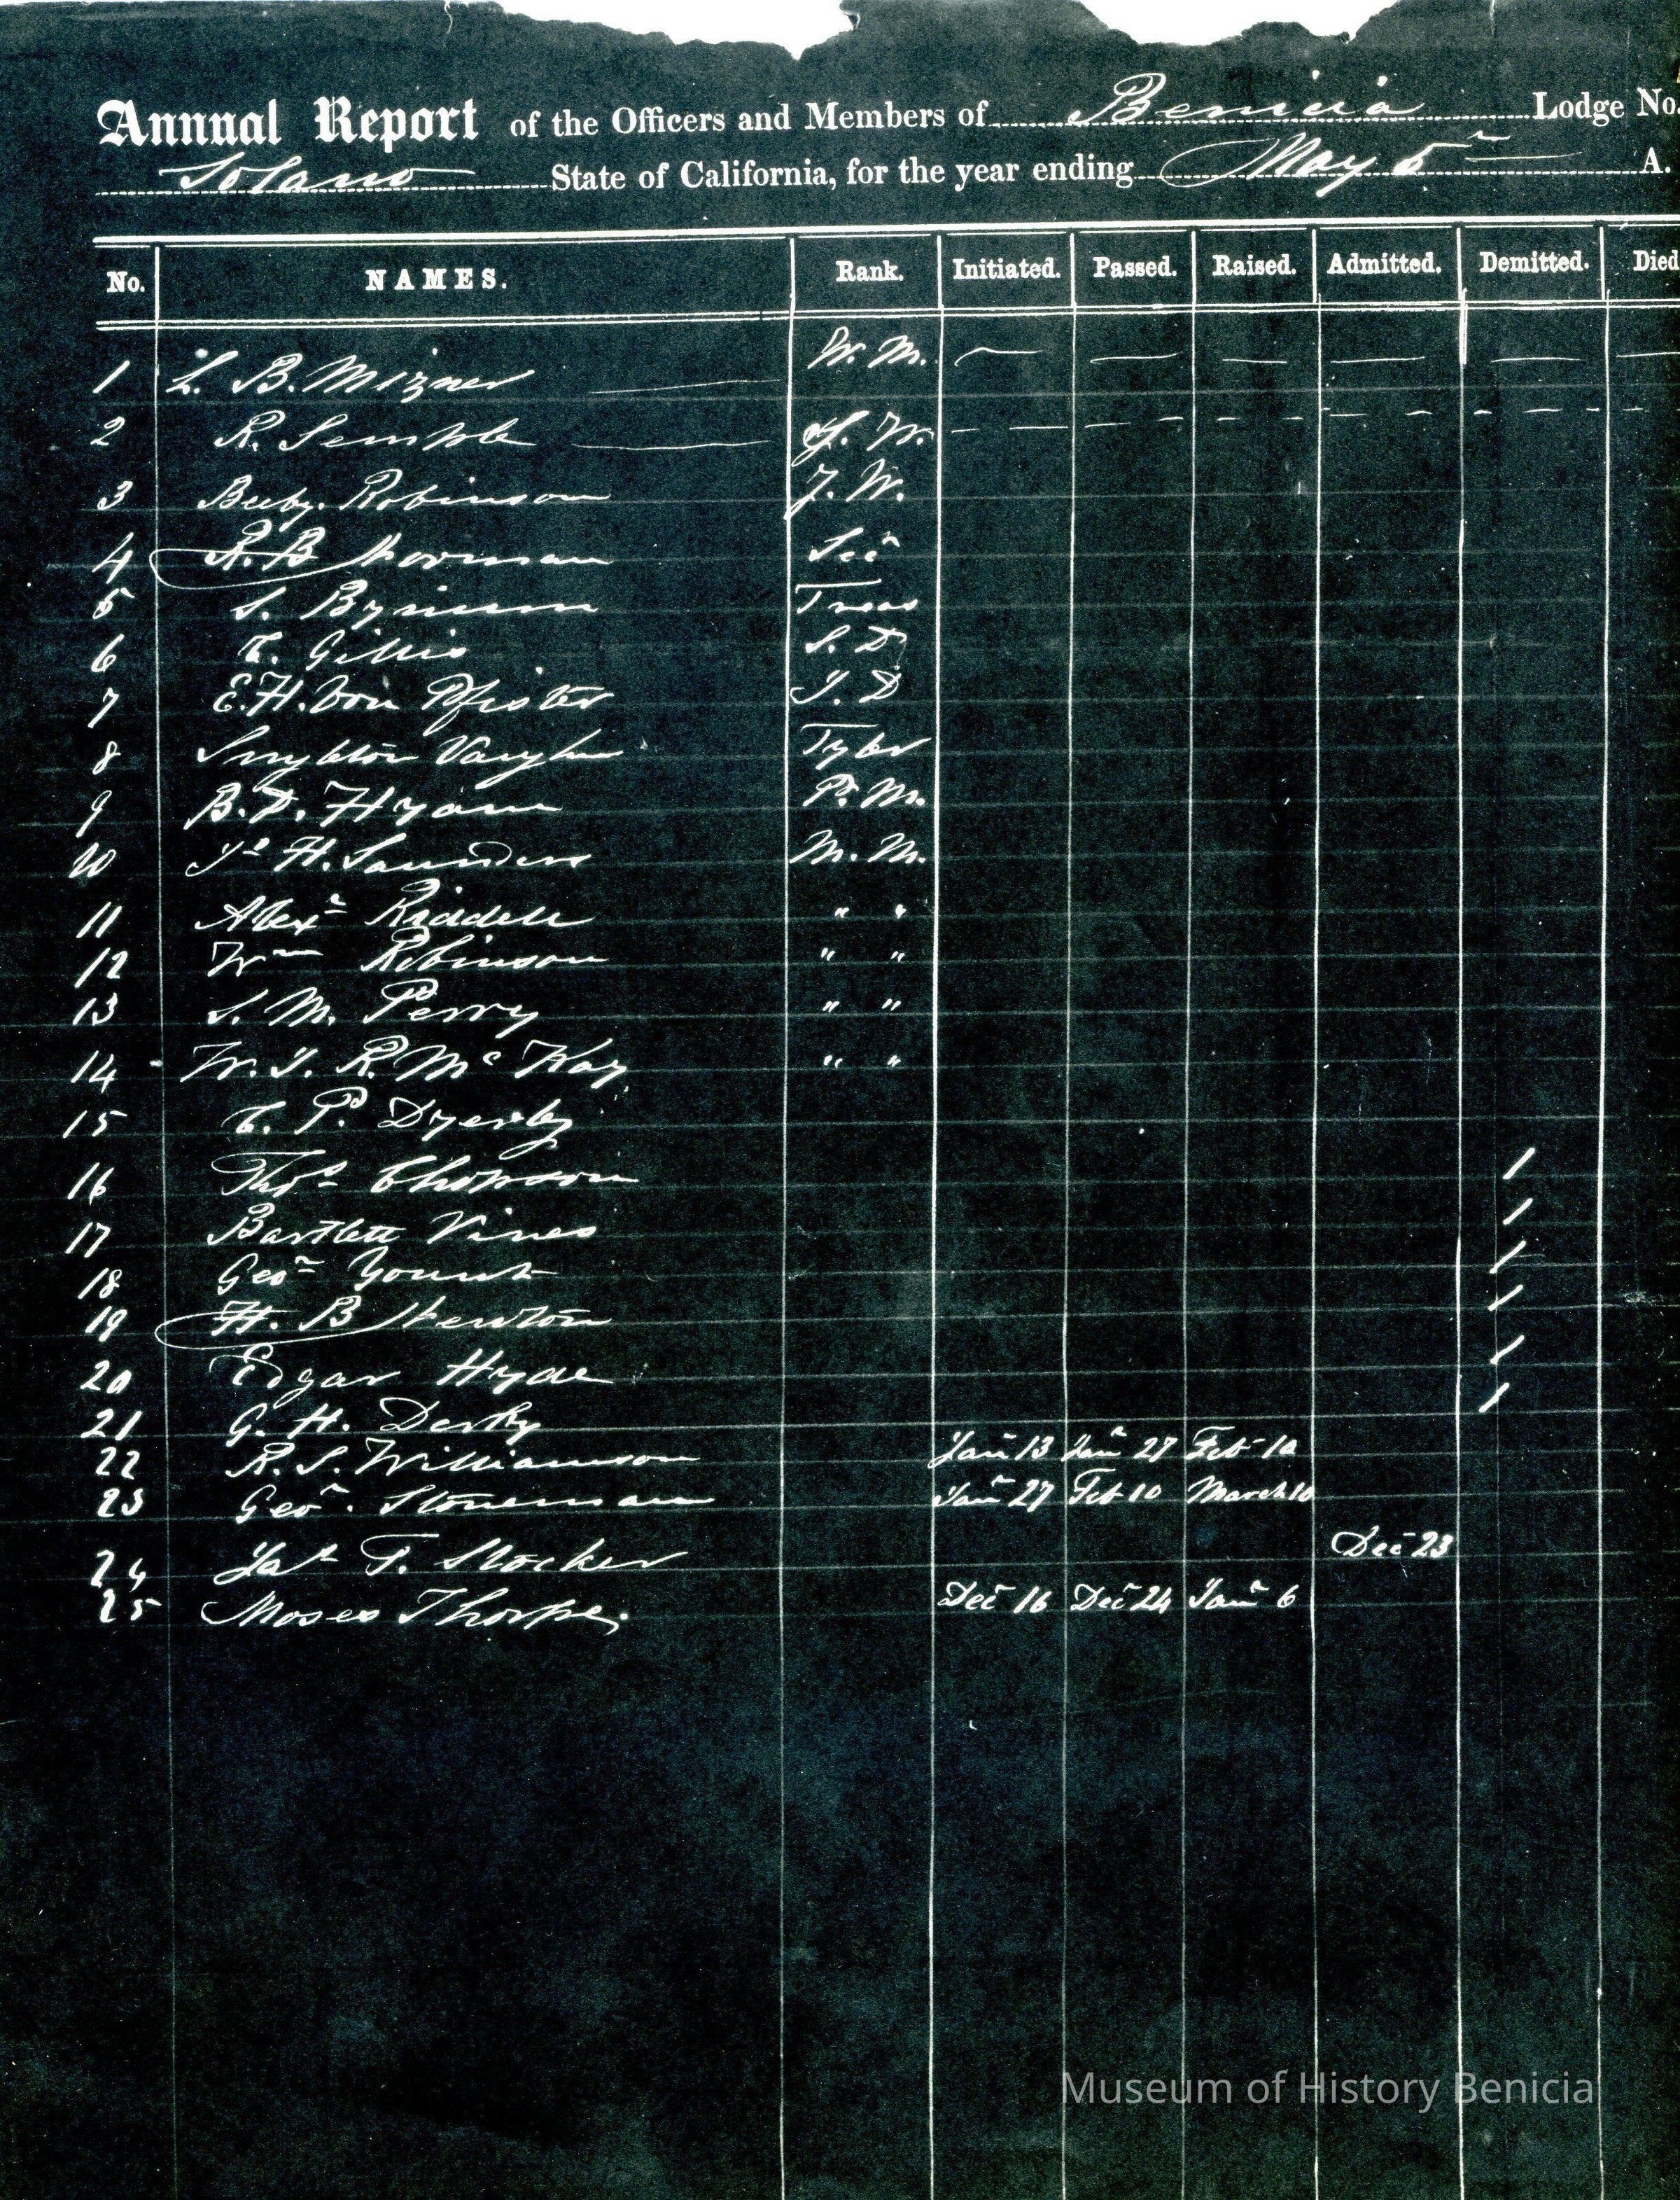 Annual Report of the Officers and Members of Benicia Lodge No.
Solano State of California, for the year ending May 5th A.
No. NAMES. Rank. Initiated. Passed. Raised. Admitted. Demitted. Died
1 L. B. Mizner W. M.
2 R. Semple S. W.
3 Robinson J. W.
4 R. B Norman Sec
5 L. Bynum Treas
6 C. Gillis S. D
7 E. H. Von Pfister J. D
8 Singleton Vaughn Tyler
9 B. D. Hyam P. M.
10 Jo H. Saunders M. M.
11 Alexr Riddell " "
12 Wm Robinson " "
13 S. M. Perry " "
14 W. J. R. Mc Kay " "
15 C. P.
16 Thos 1
17 Bartlett Vines 1
18 Geo Yount 1
19 H. B Newton 1
20 Edgar Hyde 1
21 G. H. Derby 1
22 R. S. Williamson Jan 13 Jan 27 Feb 10
23 Geo. Stoneman Jan 27 Feb 10 March 10
24 Jas T. Stocker Dec 23
25 Moses Thorpe. Dec 16 Dec 24 Jan 6
Museum of History Benicia